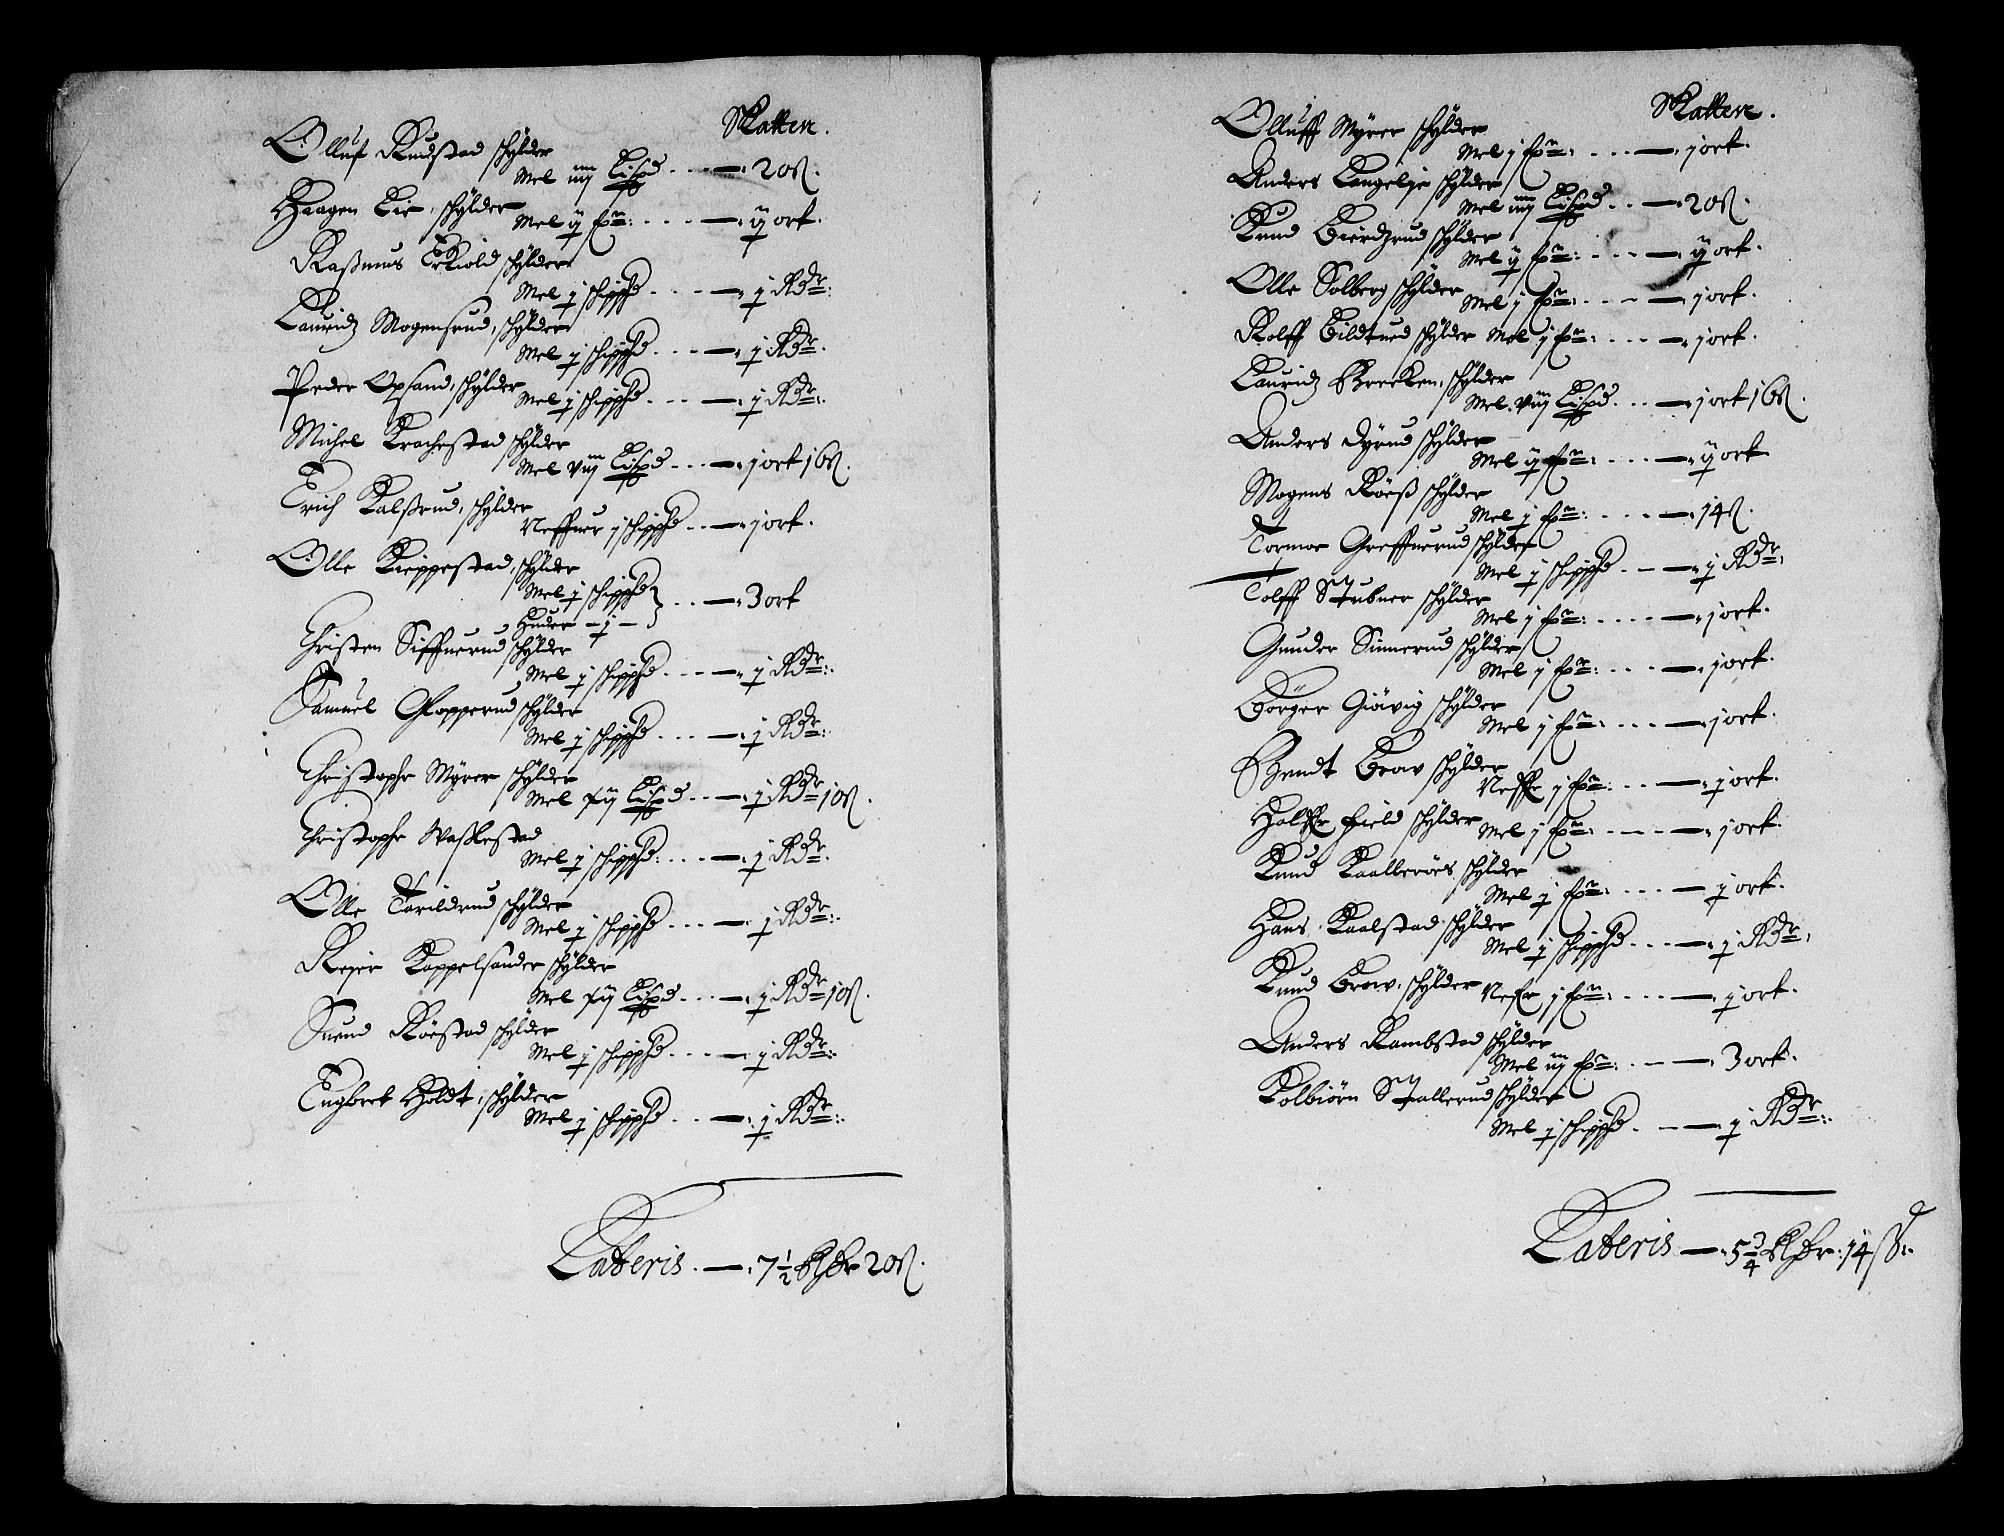 Skatten.
Olluf Rudstad schÿlder
Mel iiij Lispd - - - 20 ß.
Haagen Lie, schÿlder
Mel ij fr: - - - ij ort.
Rasmus Eckiold schÿlder
Mel j schippd - - - j Rdr:
Lauridz Mogensrud, schÿlder
Mel j schippd - - - j Rdr.
Peder Opsand, schÿlder
Mel j schippd - - - j Rdr:
Michel Krachestad schÿlder
Mel viij Lispd - - - j ort 16 ß.
Erich Kalsrud, schÿlder
Neffuer j schippd - - j ort.
Olle Kieppestad, schÿlder
Mel j schippd
Huder - j - } - - 3 ort
Christen Siffuerud schÿlder
Mel j schippd - - - j Rdr:
Samuel Glopperud schÿlder
Mel j schippd - - - j Rdr:
Christopher Mÿrer schÿlder
Mel xij Lispd - - j Rdr 10 ß.
Christopher Maslestad
Mel j schippd: - - - j Rdr.
Olle Torildrud schÿlder
Mel j schippd - - - j Rdr:
Reier Koppelsander schÿlder
Mel xij Lispd - - - j Rdr 10 ß.
Suend Röestad schÿlder
Mel j schippd - - - j Rdr:
Engbret Holdt, schÿlder
Mel j schippd - - - j Rdr:
Lateris - 7 1/2 Rhdr 20 ß.
Skatten.
Olluff Mÿrer schÿlder
Mel j fr: - - - j ort.
Anders Langelie schÿlder
Mel iiij Lispd - - 20 ß.
Knud Gierdzrud schÿlder
Mel ij fr: - - - ij ort.
Olle Solberg schÿlder
Mel j fr: - - - j ort.
Rolff Gildtued schÿlder Mel j fr: - - - j ort.
Lauridz Brecken, schÿlder
Mel viij Lispd - - - j ort 16 ß.
Anders Dÿrud schÿlder
Mel ij fr: - - - ij ort
Mogens Röeß schÿlder
Mel j fr: - - - 14 ß.
Tormoe Greffuerud schÿlder
Mel j schippd - - j Rdr:
Tolff Stubner schÿlder
Mel j fr: - - - j ort.
Gunder Sinnerud schÿlder
Mel j fr: - - - j ort.
Börger Giövig schÿlder
Mel j fr: - - - j ort.
Bendt Grov schÿlder
Neffr j fr: - - - j ort.
Halffr Field schÿlder Mel j fr: - - - j ort.
Knud Kaalleröes schÿlder
Mel j fr: - - - j ort.
Hans Kaalstad schÿlder
Mel j schippd - - - j Rdr,
Knud Grov, schÿlder Nefr j fr: - - - j ort.
Anders Rambstad schÿlder
Mel iij fr: - - 3 ort.
Kolbiörn Stallerud schÿlder
Mel j schippd - - - j Rdr:
Lateris - 5 3/4 Rhdr: 14 ß: